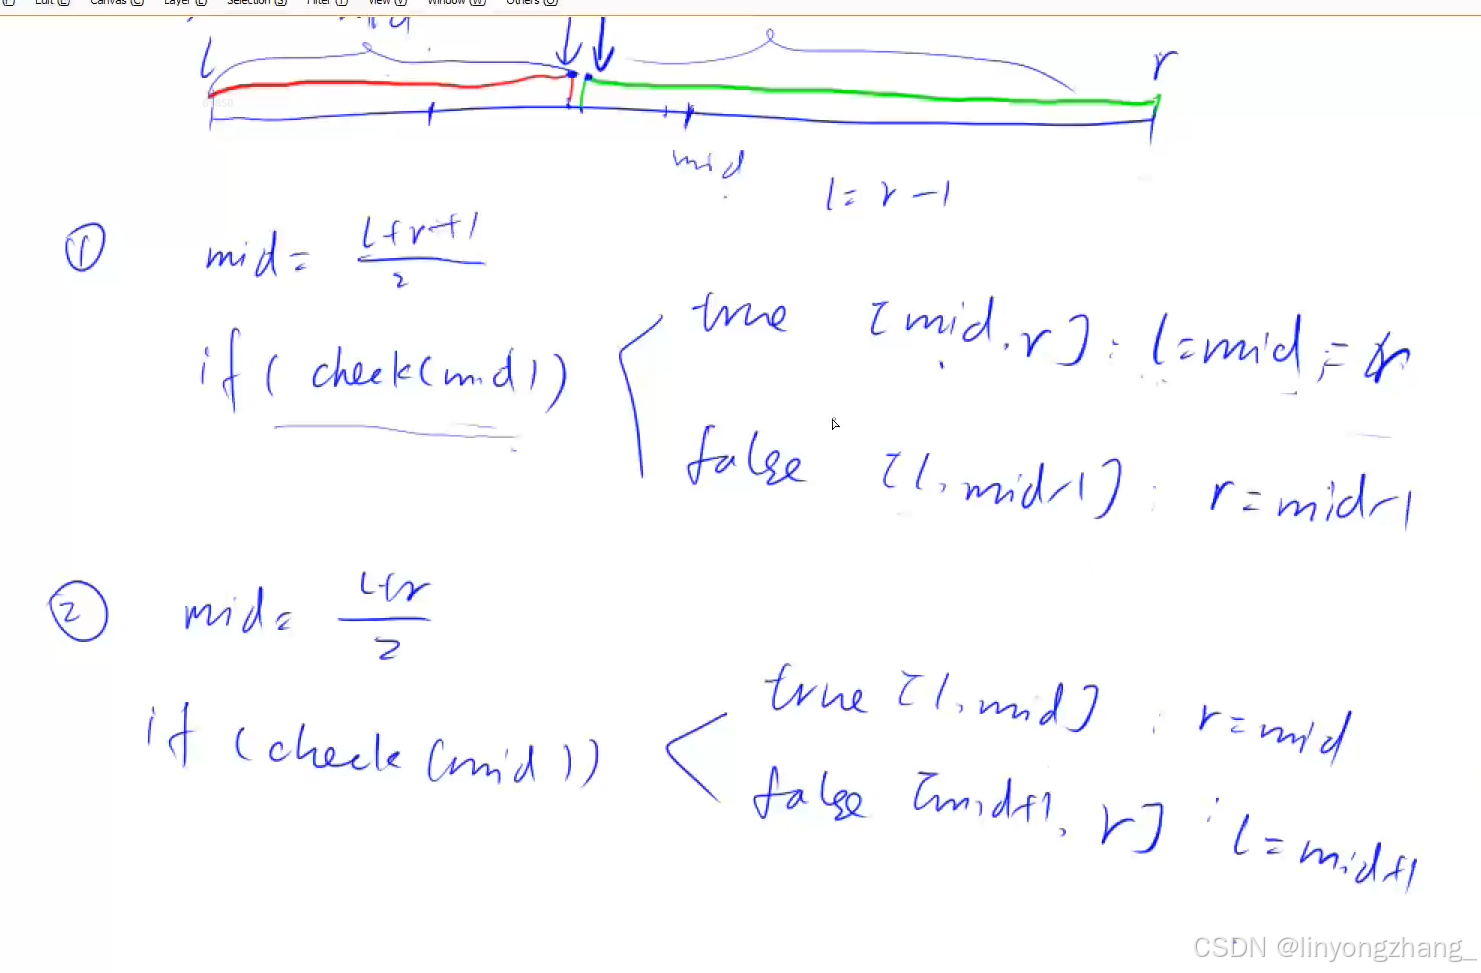 Edit (E) Canvas (C) Layer (L) Selection (S) Filter (T) View (V) Window (W) Others (O)
l r
mid
l = r - 1
① mid = l+r+1
2
if ( check(mid)) true [mid, r] : l = mid = r
false [l, mid-1] : r = mid-1
② mid = l+r
2
if (check (mid)) true [l, mid] : r = mid
false [mid+1, r] : l = mid+1
CSDN @linyongzhang_